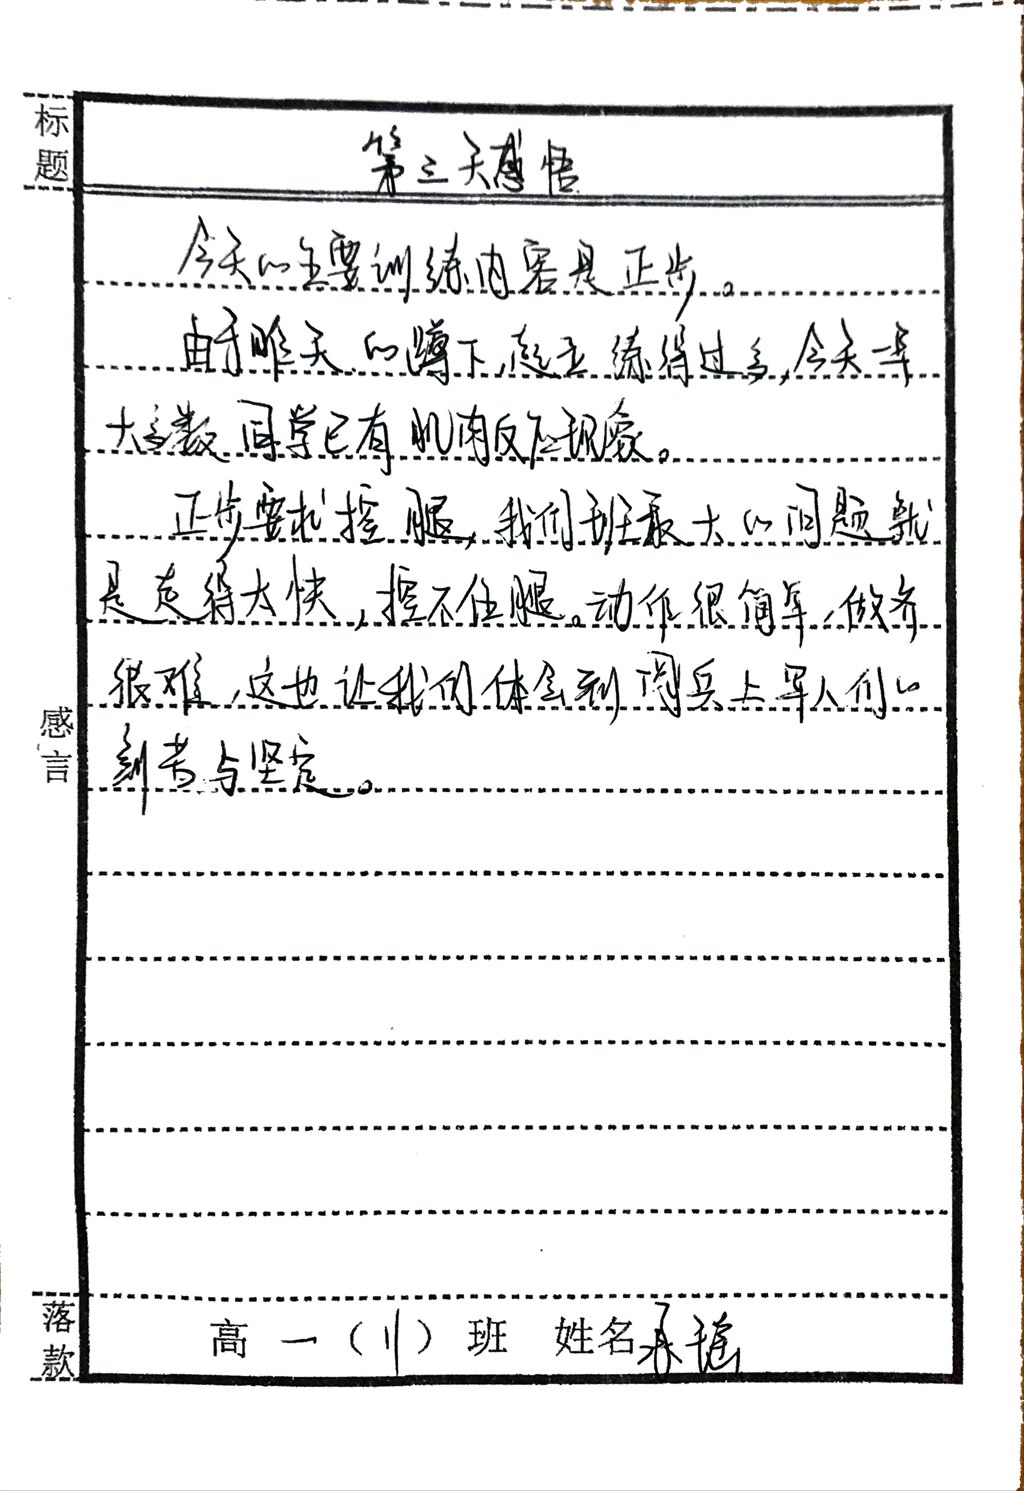 标题
第三天感悟
今天的主要训练内容是正步。
由于昨天的蹲下,起立练得过多,今天早
大多数同学已有肌肉反应现象。
正步要求控腿,我们班最大的问题就
是走得太快,控不住腿。动作很简单,做齐
很难,这也让我们体会到阅兵上军人们的
刻苦与坚定。
感言
落款
高一(11)班 姓名